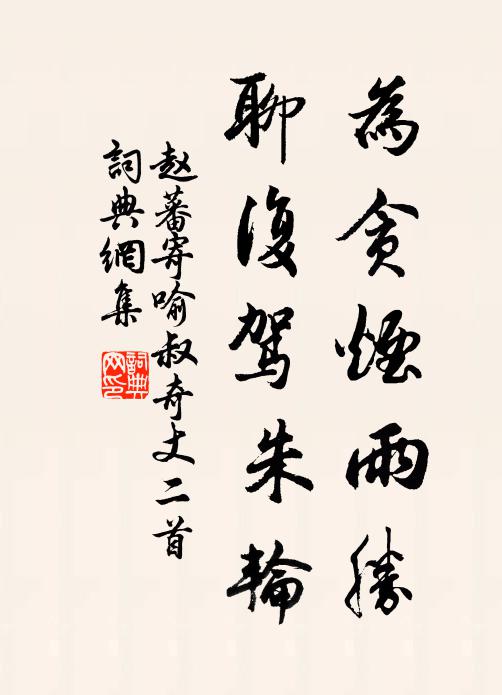 為貪煙雨勝
聊復駕朱輪
赵蕃寄喻叔奇丈二首
詞典網集
詞典网印